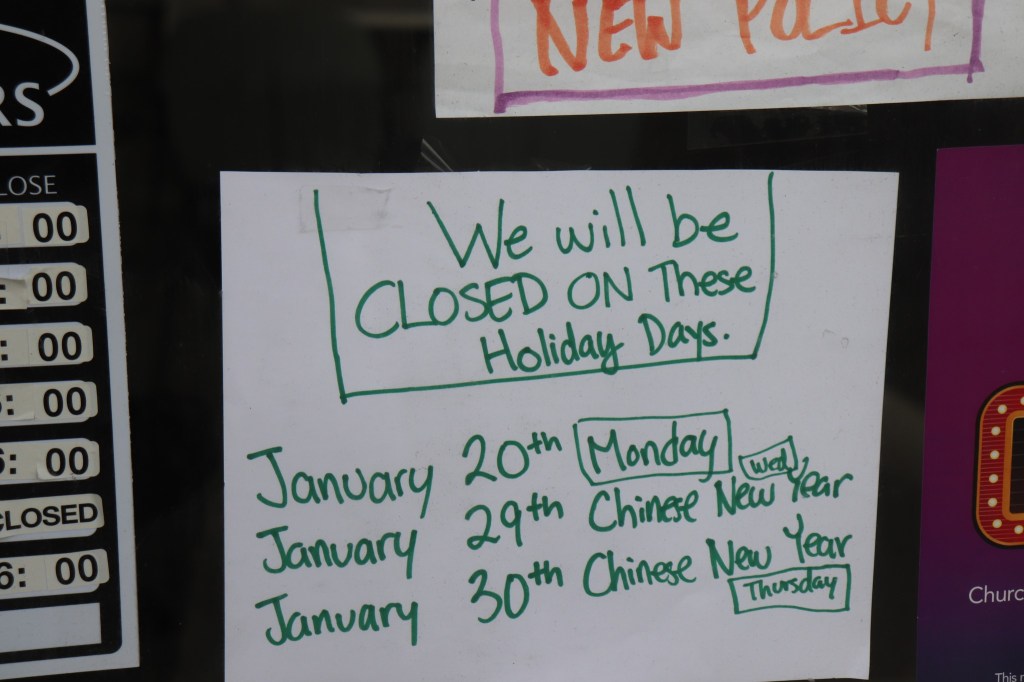 NEW POLICY
RS
LOSE
00
: 00
: 00
: 00
6: 00
CLOSED
6: 00
We will be
CLOSED ON These
Holiday Days.
January 20th Monday
January 29th Chinese New Year Wed
January 30th Chinese New Year
Thursday
Churc
This